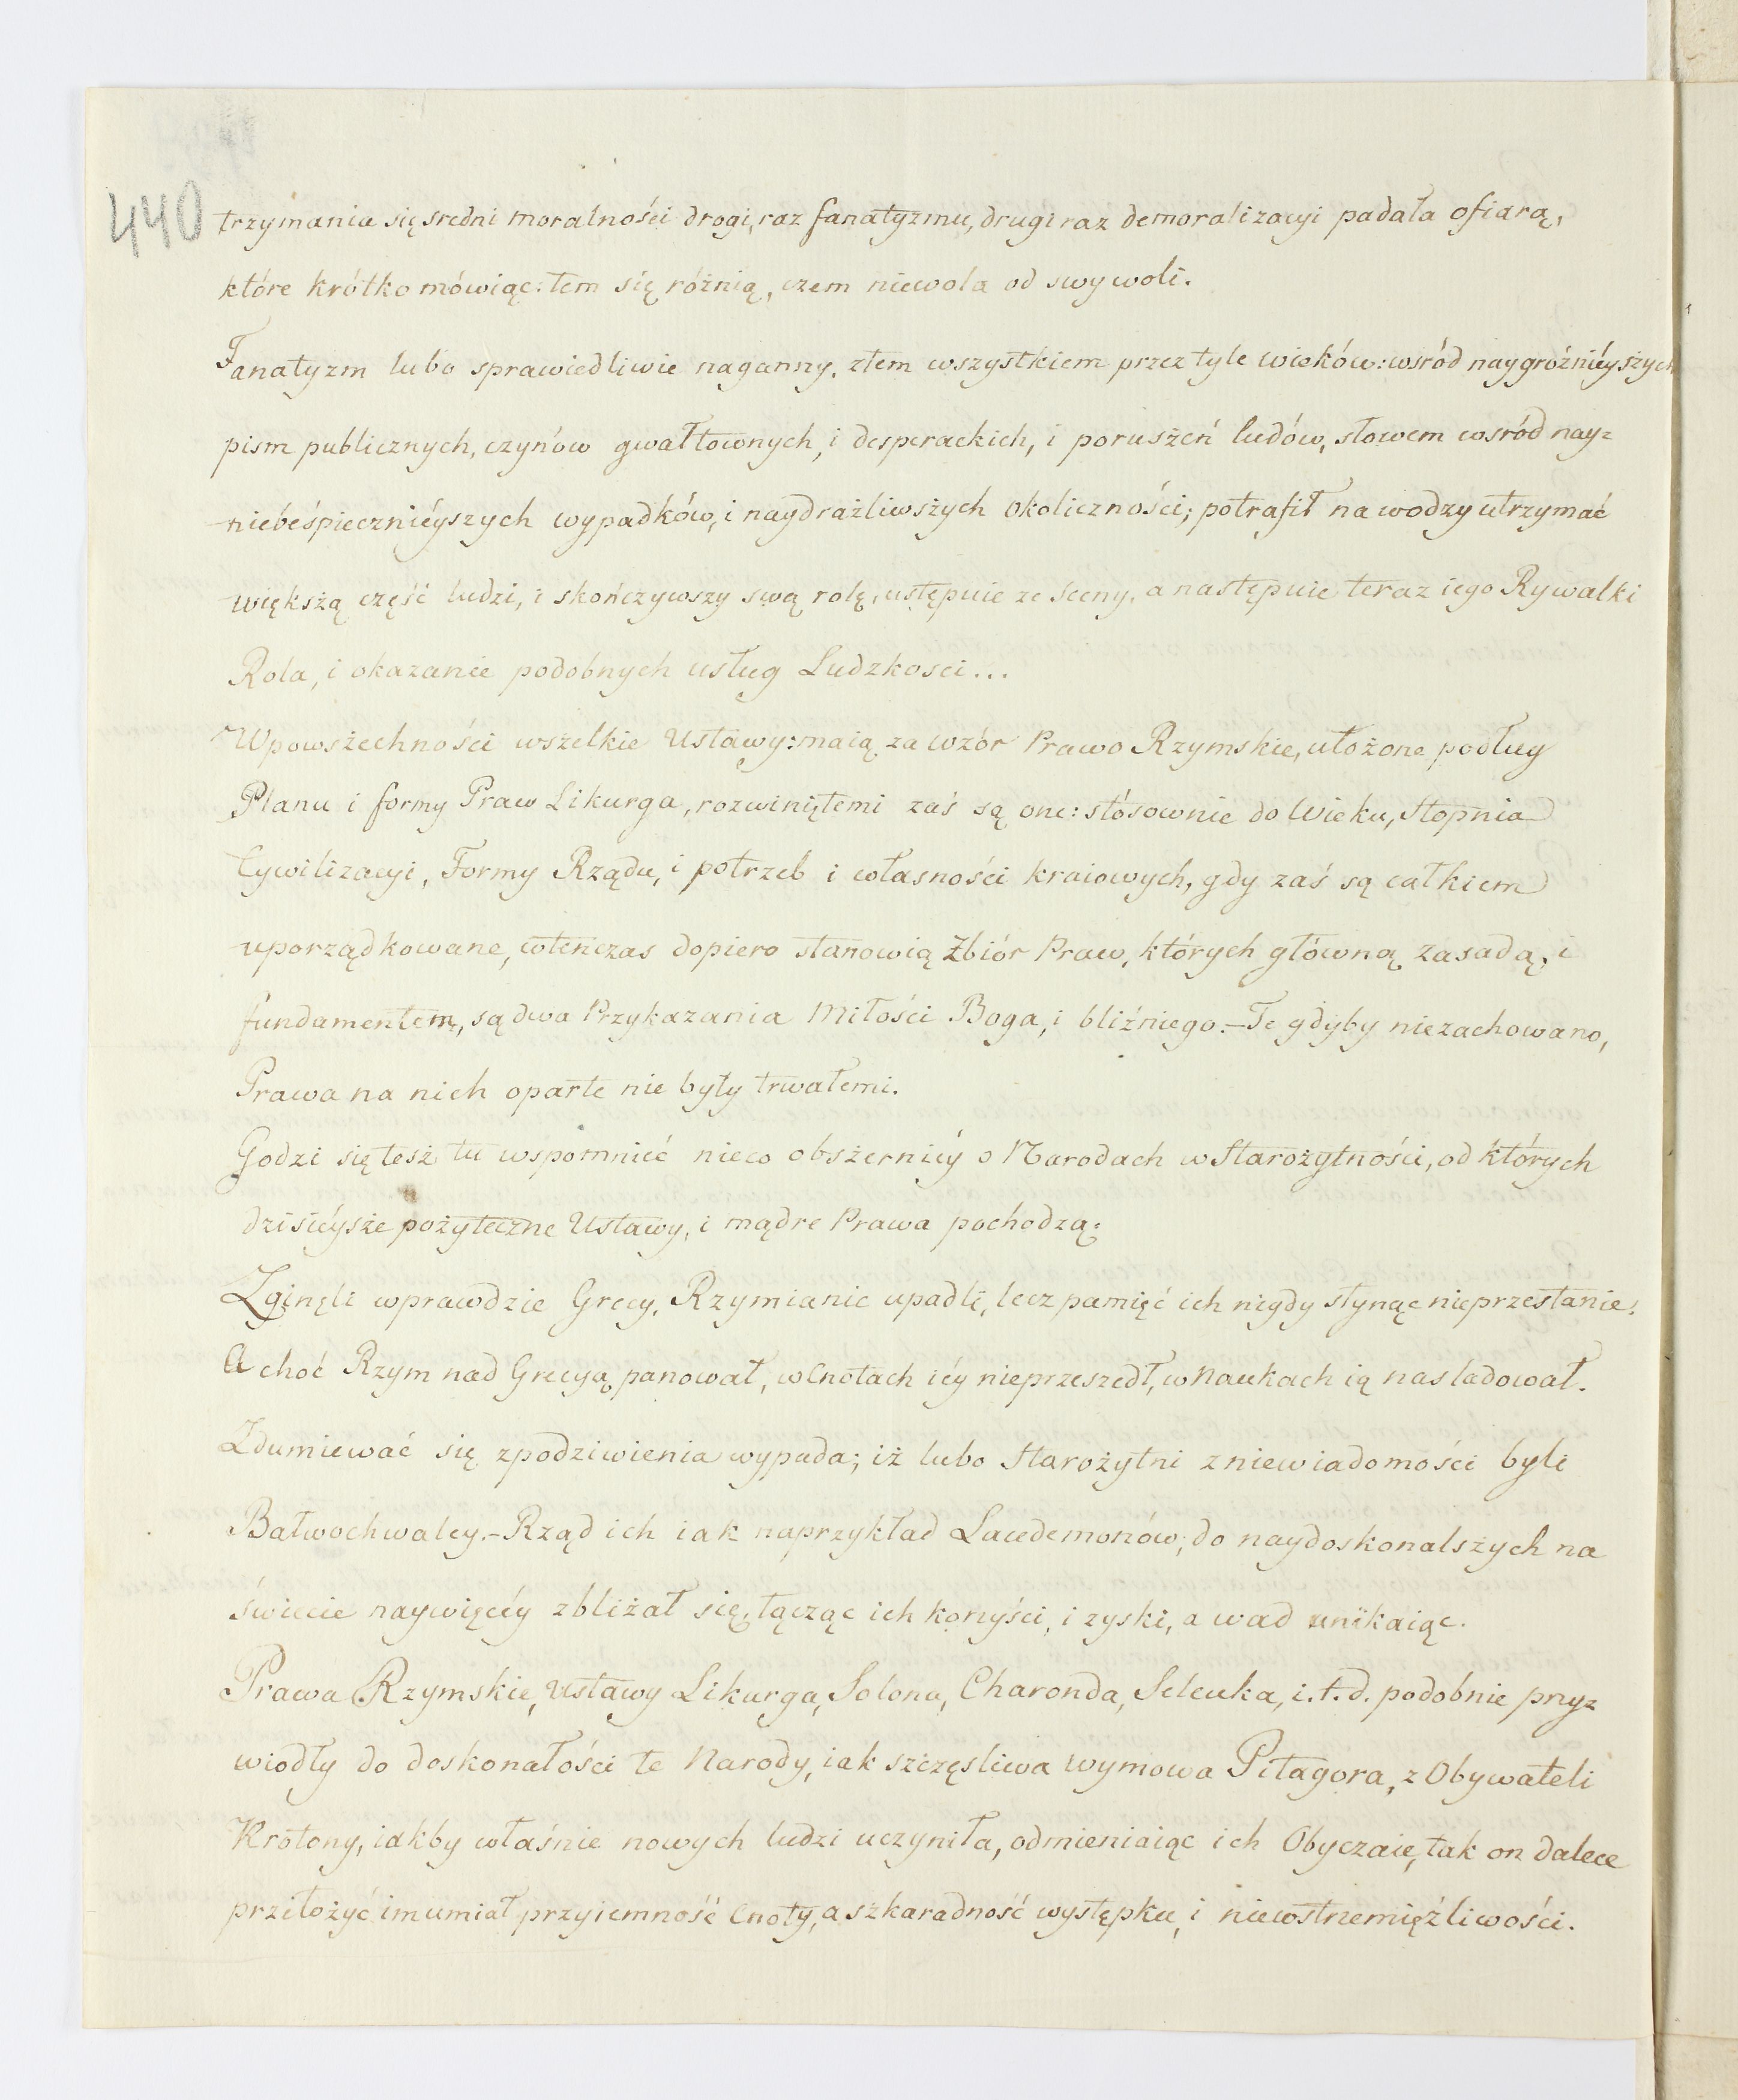 440
trzymania się sredni moralności drogi, raz fanatyzmu, drugi raz demoralizacyi padała ofiarą,
które krótko mówiąc: tem się różnią, czem niewola od swywoli.
Fanatyzm lubo sprawiedliwie naganny, ztem wszystkiem przez tyle wieków: wsród naygroźnieyszych
pism publicznych, czynów gwałtownych, i desperackich, i poruszeń ludów, słowem wsród nay=
niebeśpieczniéyszych wypadków, i naydrażliwszych okoliczności; potrafił na wodzy utrzymać
większą część ludzi, i skończywszy swą rolę, ustępuie ze sceny, a następuie teraz iego Rywalki
Rola, i okazanie podobnych usług Ludzkosci...
Wpowszechności wszelkie Ustawy: maią za wzór Prawo Rzymskie, ułożone podług
Planu i formy Praw Likurga, rozwiniętemi zaś są one: stósownie do Wieku, Stopnia
Cywilizacyi, Formy Rządu, i potrzeb i własności kraiowych, gdy zaś są całkiem
uporządkowane, wtenczas dopiero stanowią Zbiór Praw, których główną zasadą, i
fundamentem, są dwa Przykazania Miłości Boga, i bliźniego.– Te gdyby niezachowano,
Prawa na nich oparte nie były trwałemi.
Godzi się tesz tu wspomnieć nieco obszerniéy o Narodach w Starożytności, od których
dzisiéysze pożyteczne Ustawy, i mądre Prawa pochodzą:
Zginęli wprawdzie Grecy, Rzymianie upadli, lecz pamięć ich nigdy słynąc nieprzestanie.
A choć Rzym nad Grecyą panował, w Cnotach iéy nieprzeszedł, w Naukach ią nasladował.
Zdumiewać się zpodziwienia wypada; iż lubo Starożytni z niewiadomości byli
Bałwochwalcy.– Rząd ich iak naprzykład Lacedemonów; do naydoskonalszych na
świecie naywięcéy zbliżał się, łącząc ich korzyści, i zyski, a wad unikaiąc.
Prawa Rzymskie, Ustawy Likurga, Solona, Charonda, Seleuka, i.t.d. podobnie przy=
wiodły do doskonałości te Narody, iak szczęsliwa wymowa Pitagora, z Obywateli
Krotony, iakby właśnie nowych ludzi uczyniła, odmieniaiąc ich Obyczaie, tak on dalece
przełożyć im umiał przyiemność Cnoty, a szkaradność występku, i niewstrzemięźliwości.